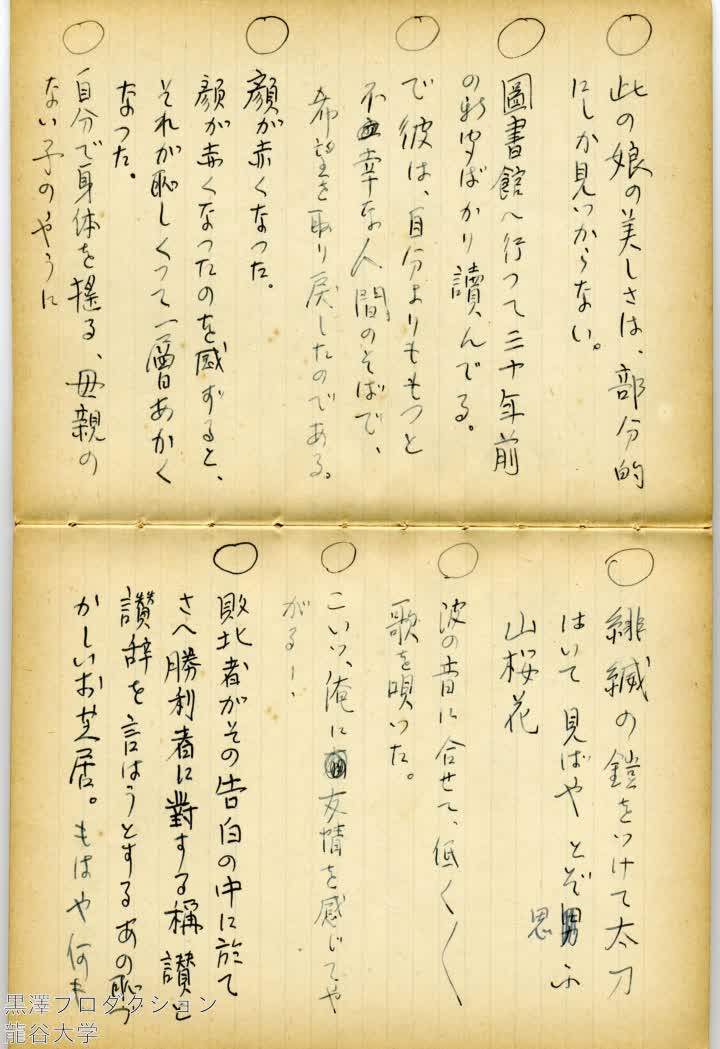 ○ 此の娘の美しさは、部分的
にしか見つからない。
○ 圖書館へ行つて三十年前
の新聞ばかり讀んでる。
○ で彼は、自分よりももつと
不幸な人間のそばで、
希望を取り戻したのである。
○ 顔が赤くなつた。
顔が赤くなつたのを感ずると、
それが恥しくつて一層あかく
なつた。
○ 自分で身体を搖る、母親の
ない子のやうに
○ 緋縅の鎧をつけて太刀
はいて見ばやとぞ思ふ
山桜花
○ 波の音に合せて、低く〱
歌を唄つた。
○ こいつ、俺に友情を感じてや
がる—、
○ 敗北者がその告白の中に於て
さへ勝利者に對する稱讃と
讃辞を言はうとするあの恥づ
かしいお芝居。もはや何も
黒澤プロダクション
龍谷大学